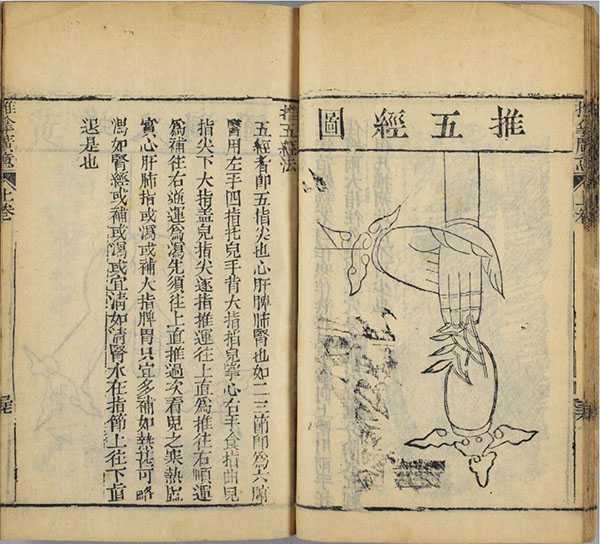 推五經圖
推五經法
五經者即五指尖也心肝脾肺腎也如二三節即爲六腑
醫用左手四指托兒手背大指掐兒掌心右手食指曲兒
指尖下大指蓋兒指尖逐指推運往上直爲推往右順運
爲補往左逆運爲瀉先須往上直推過次看兒之寒熱虛
實心肝肺指或瀉或補大指脾胃只宜多補如熱甚可略
瀉如腎經或補或瀉或宜清如清腎水在指節上往下直
退是也
推拿廣意
上卷